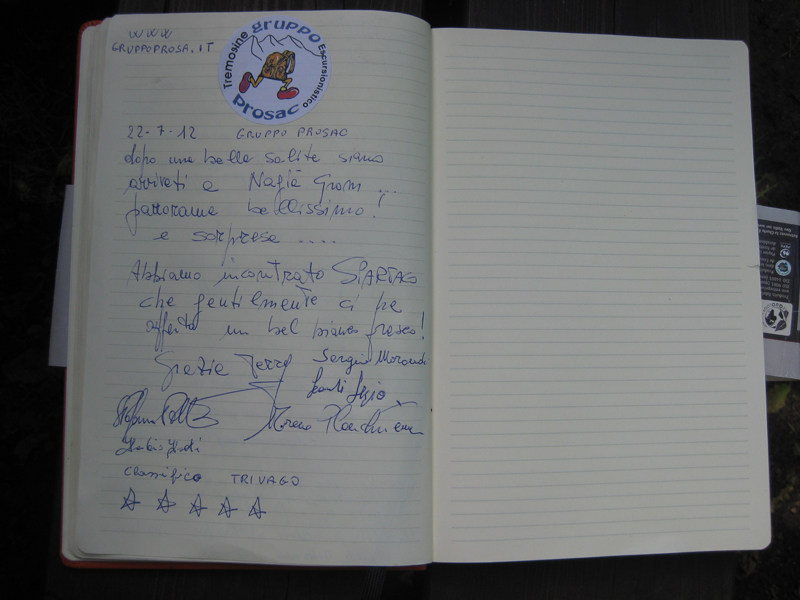 www
GRUPPOPROSA.IT
Tremosine gruppo Escursionistico
prosac
22-7-12 GRUPPO PROSAC
dopo una bella salita siamo
arrivati a Nagià Grom...
panorama bellissimo!
e sorprese ....
Abbiamo incontrato SPARTACO
che gentilmente ci ha
offerto un bel bianco fresco!
Grazie Sergio Morandi
Moreno
classifica TRIVAGO
☆ ☆ ☆ ☆ ☆